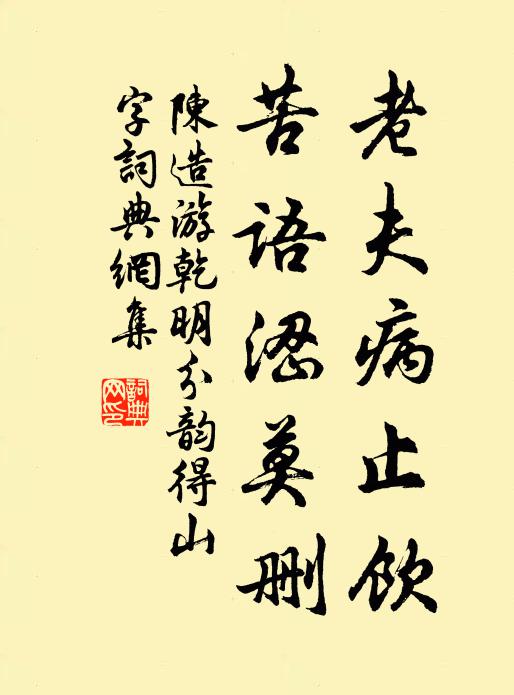 老夫病止飲
苦語澀莫刪
陳造游乾明分韵得山
字詞典網集
詞典
网印